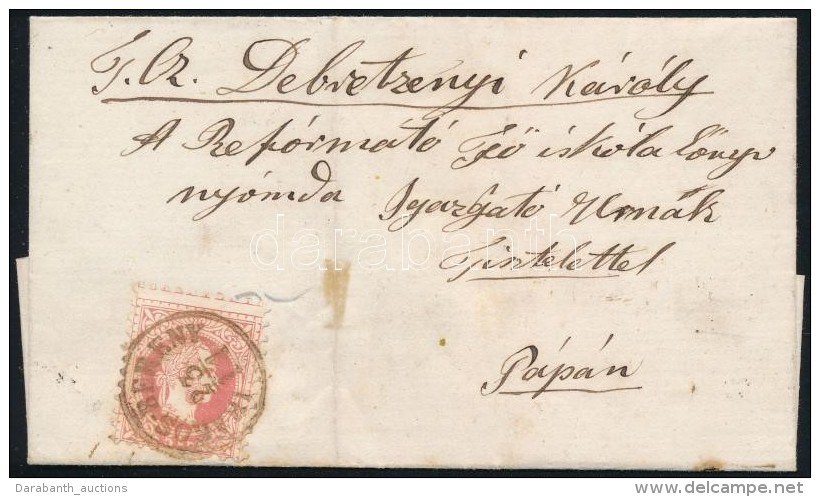 T. Cz. Debretzenyi Károly
A Refórmató Fő iskóla könyv
nyómda Igazgató Urnák
Tisztelettel
Pápán
darabanth
Darabanth_auctions
www.delcampe.net